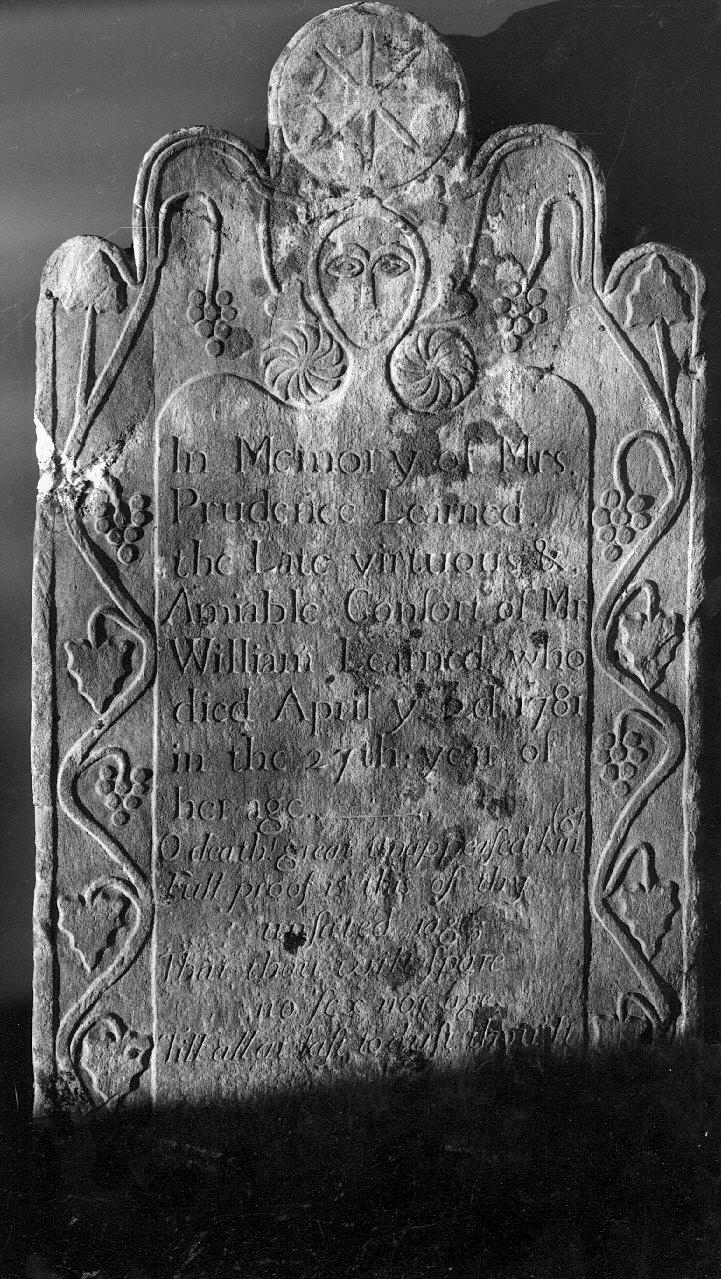 In Memory of Mrs.
Prudence Learned,
the Late virtuous &
Amiable Conſort of Mr
William Learned who
died April y 3d 1781
in the 27th. year of
her age.
O death! great unappeaſed kin
Full proof is this of thy
unſated rage
That thou wilt ſpare
no ſex nor age
Till all at laſt to duſt